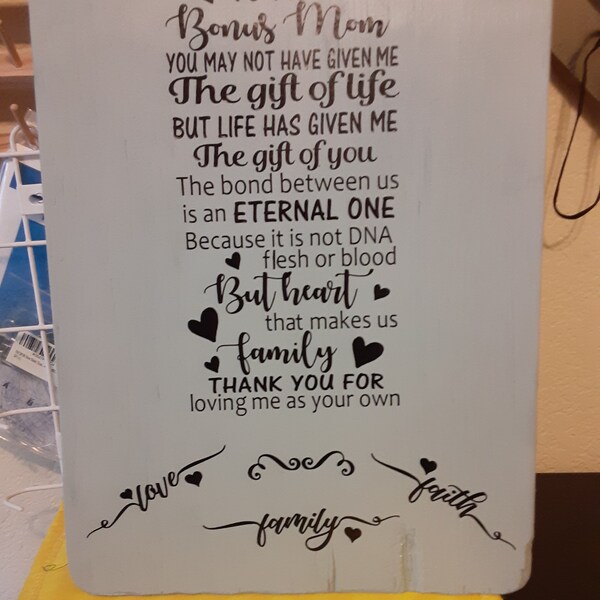 Bonus Mom
YOU MAY NOT HAVE GIVEN ME
The gift of life
BUT LIFE HAS GIVEN ME
The gift of you
The bond between us
is an ETERNAL ONE
Because it is not DNA
flesh or blood
But heart
that makes us
family
THANK YOU FOR
loving me as your own
love
faith
family